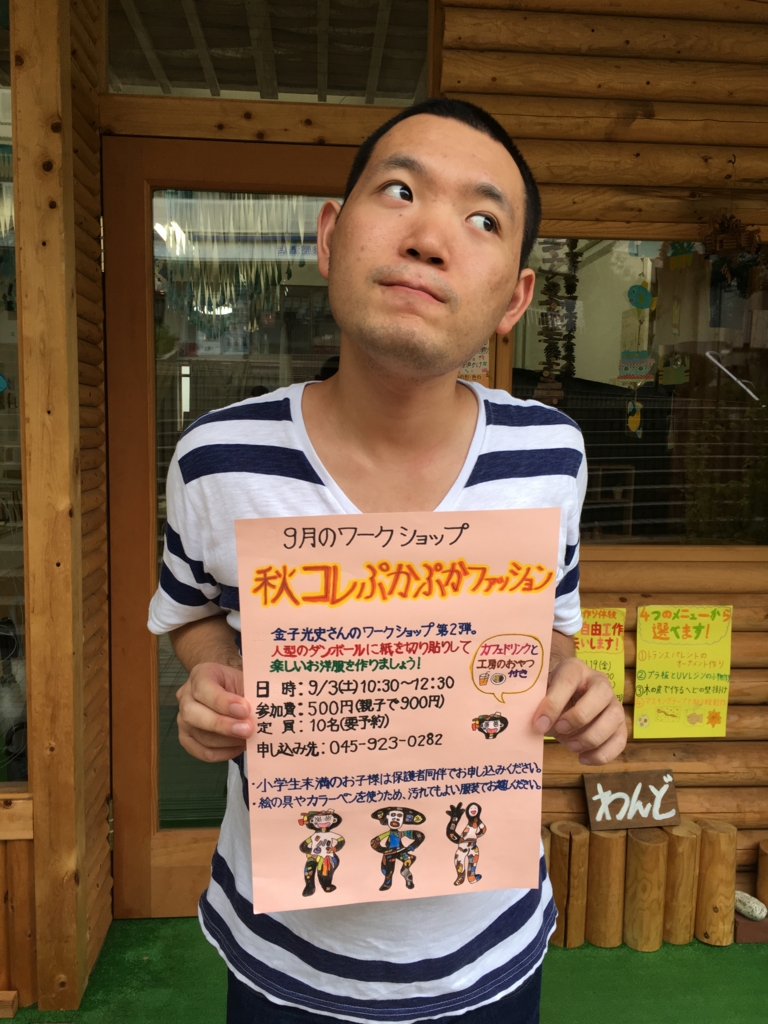 9月のワークショップ
秋コレぷかぷかファッション
金子光史さんのワークショップ第2弾。
人型のダンボールに紙を切り貼りして
楽しいお洋服を作りましょう!
カフェドリンクと
工房のおやつ
付き
日 時:9/3(土)10:30〜12:30
参加費:500円(親子で900円)
定 員:10名(要予約)
申し込み先:045-923-0282
・小学生未満のお子様は保護者同伴でお申し込みください。
・絵の具やカラーペンを使うため、汚れてもよい服装でお越しください。
自由工作
4つのメニューから
選べます!
わんど